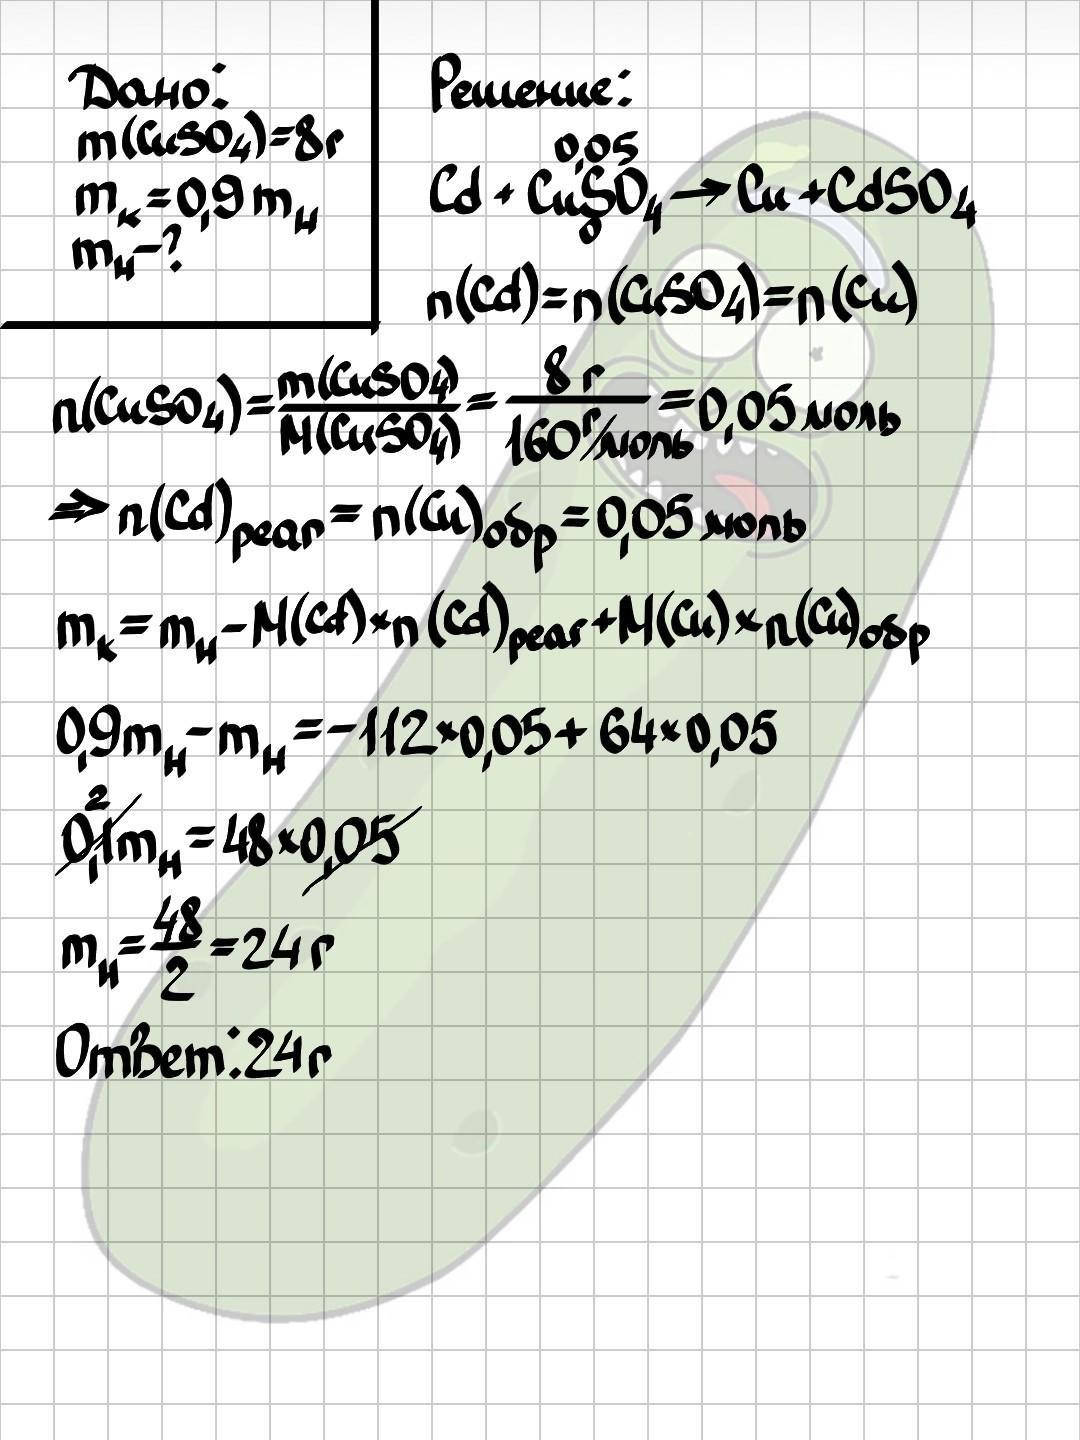 Дано:
m(CuSO4)=8г
mк=0,9mн
mн-?
Решение:
0,05
Cd + CuSO4→Cu+CdSO4
0
n(Cd)=n(CuSO4)=n(Cu)
n(CuSO4)=m(CuSO4)/M(CuSO4)=8 г/160 г/моль=0,05 моль
⇒ n(Cd)реаг=n(Cu)обр=0,05 моль
mк=mн-M(Cd)×n(Cd)реаг+M(Cu)×n(Cu)обр
0,9mн-mн=-112×0,05+64×0,05
2
0,1mн=48×0,05
mн=48/2=24 г
Ответ:24г